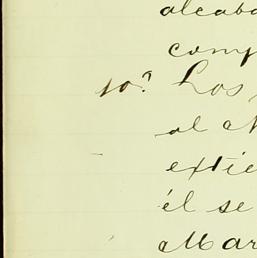 alcaba
comp
10.ª Los
al M
extie
él se
Mar